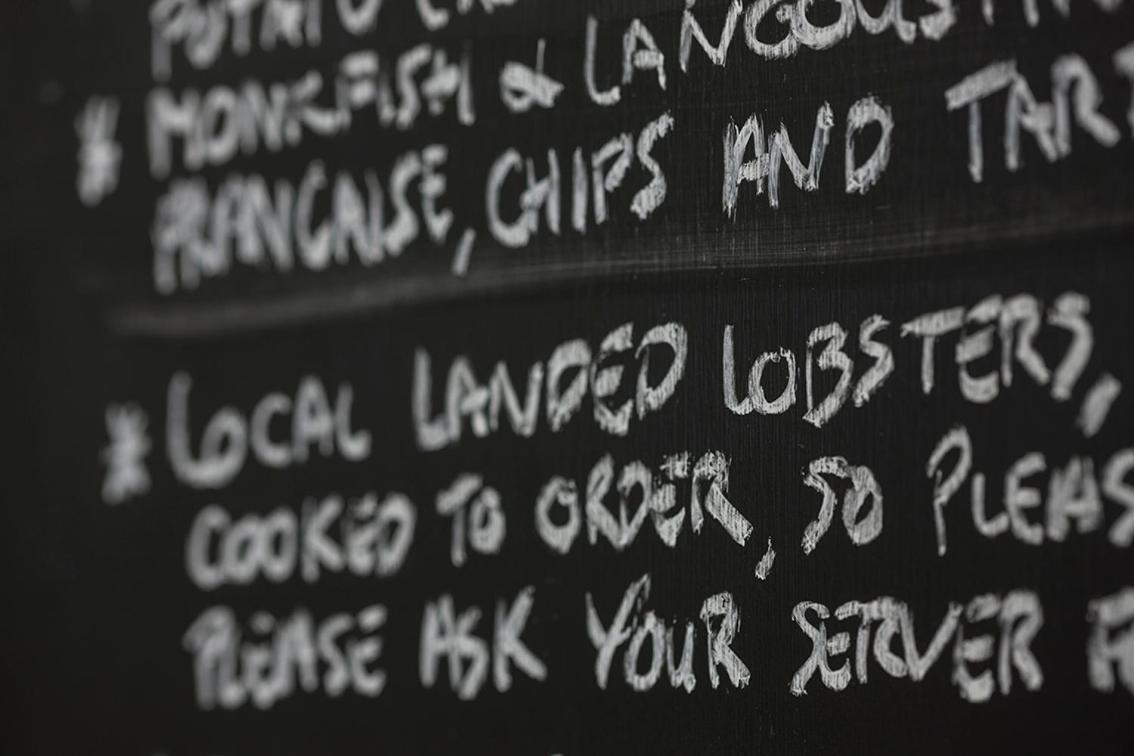 POTATO
* MONKFISH & LANGOUSTIN
FRANCAISE, CHIPS AND TART
* LOCAL LANDED LOBSTERS,
COOKED TO ORDER, SO PLEAS
PLEASE ASK YOUR SERVER F